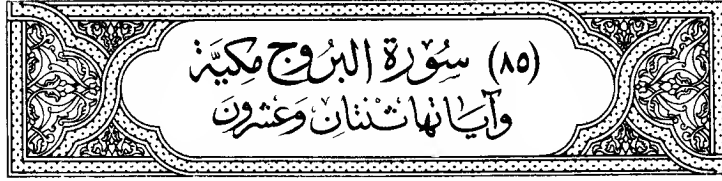 (٨٥) سُوْرَة البُرُوج مكيَّة
وآيَاتها ثنْتَانِ وَعشرُونَ